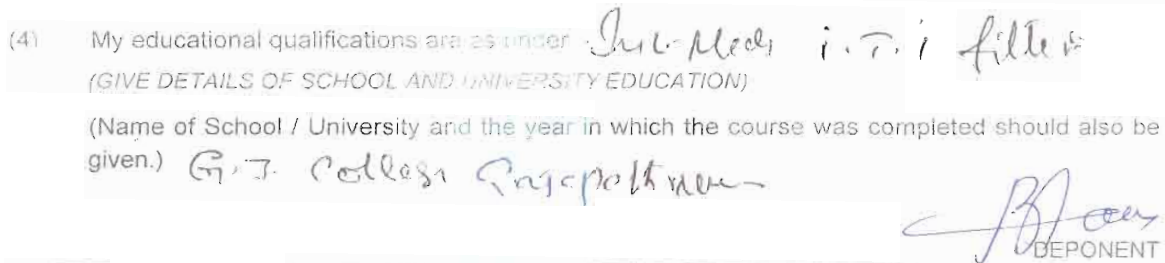 (4) My educational qualifications are as under i.T.i fitter
(GIVE DETAILS OF SCHOOL AND UNIVERSITY EDUCATION)
(Name of School / University and the year in which the course was completed should also be
given.) G.J. College
DEPONENT